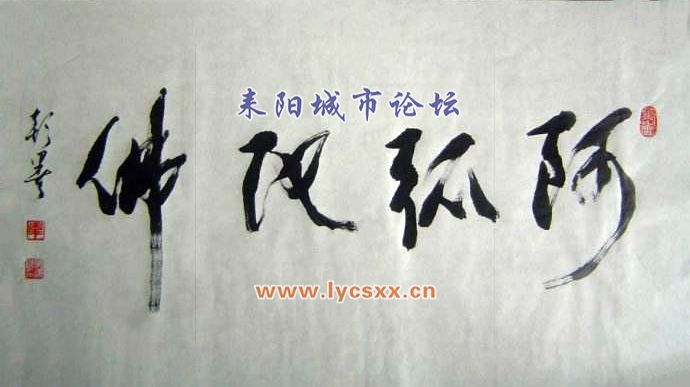 耒阳城市论坛
阿弥陀佛
www.lycsxx.cn